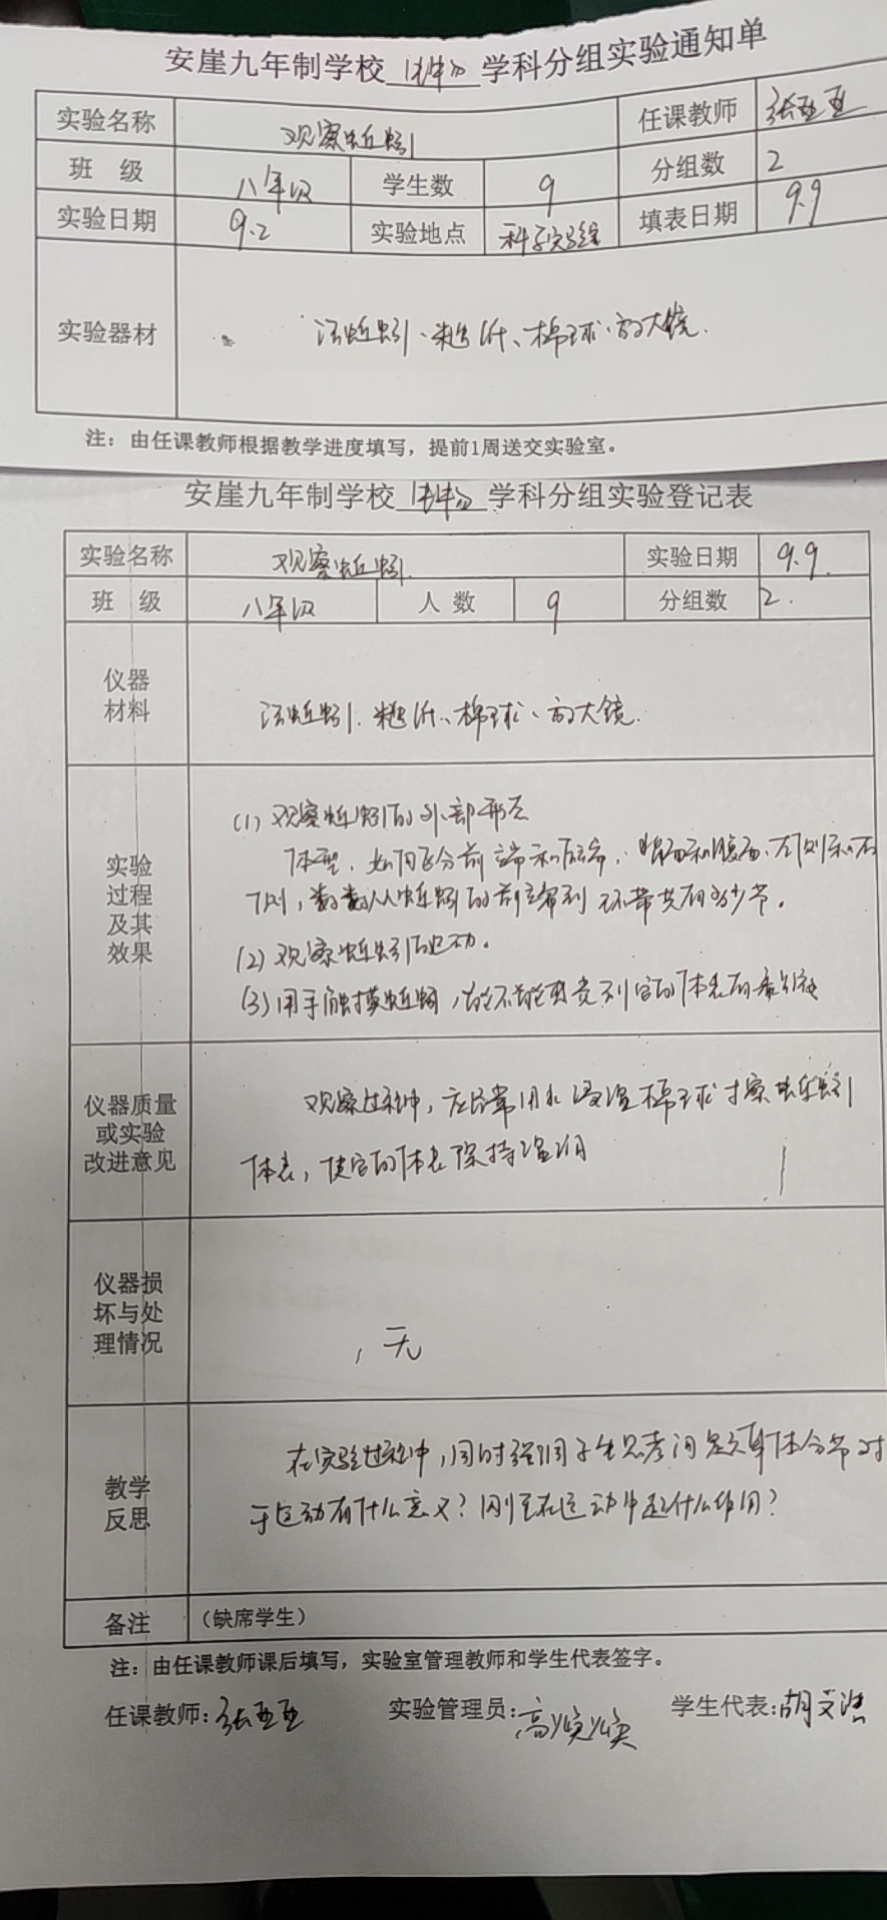 安崖九年制学校 生物 学科分组实验通知单
实验名称 观察蚯蚓 任课教师 张亚亚
班 级 八年级 学生数 9 分组数 2
实验日期 9.2 实验地点 科学实验室 填表日期 9.9
实验器材 活蚯蚓、糙纸、棉球、放大镜.
注：由任课教师根据教学进度填写，提前1周送交实验室。
安崖九年制学校 生物 学科分组实验登记表
实验名称 观察蚯蚓 实验日期 9.9.
班 级 八年级 人 数 9 分组数 2.
仪器
材料
活蚯蚓、糙纸、棉球、放大镜.
实验
过程
及其
效果
(1) 观察蚯蚓的外部形态
体型，如何区分前端和后端、背面和腹面、左侧和右
侧，数数从蚯蚓的前端到环带共有多少节。
(2) 观察蚯蚓的运动。
(3) 用手触摸蚯蚓，能不能感觉到它的体表有黏液
仪器质量
或实验
改进意见
观察过程中，应经常用水浸湿棉球擦蚯蚓
体表，使它的体表保持湿润
仪器损
坏与处
理情况
无
教学
反思
在实验过程中，同时强调学生思考问题：身体分节对
于运动有什么意义？刚毛在运动中起什么作用？
备注 （缺席学生）
注：由任课教师课后填写，实验室管理教师和学生代表签字。
任课教师：张亚亚 实验管理员： 学生代表：胡文浩